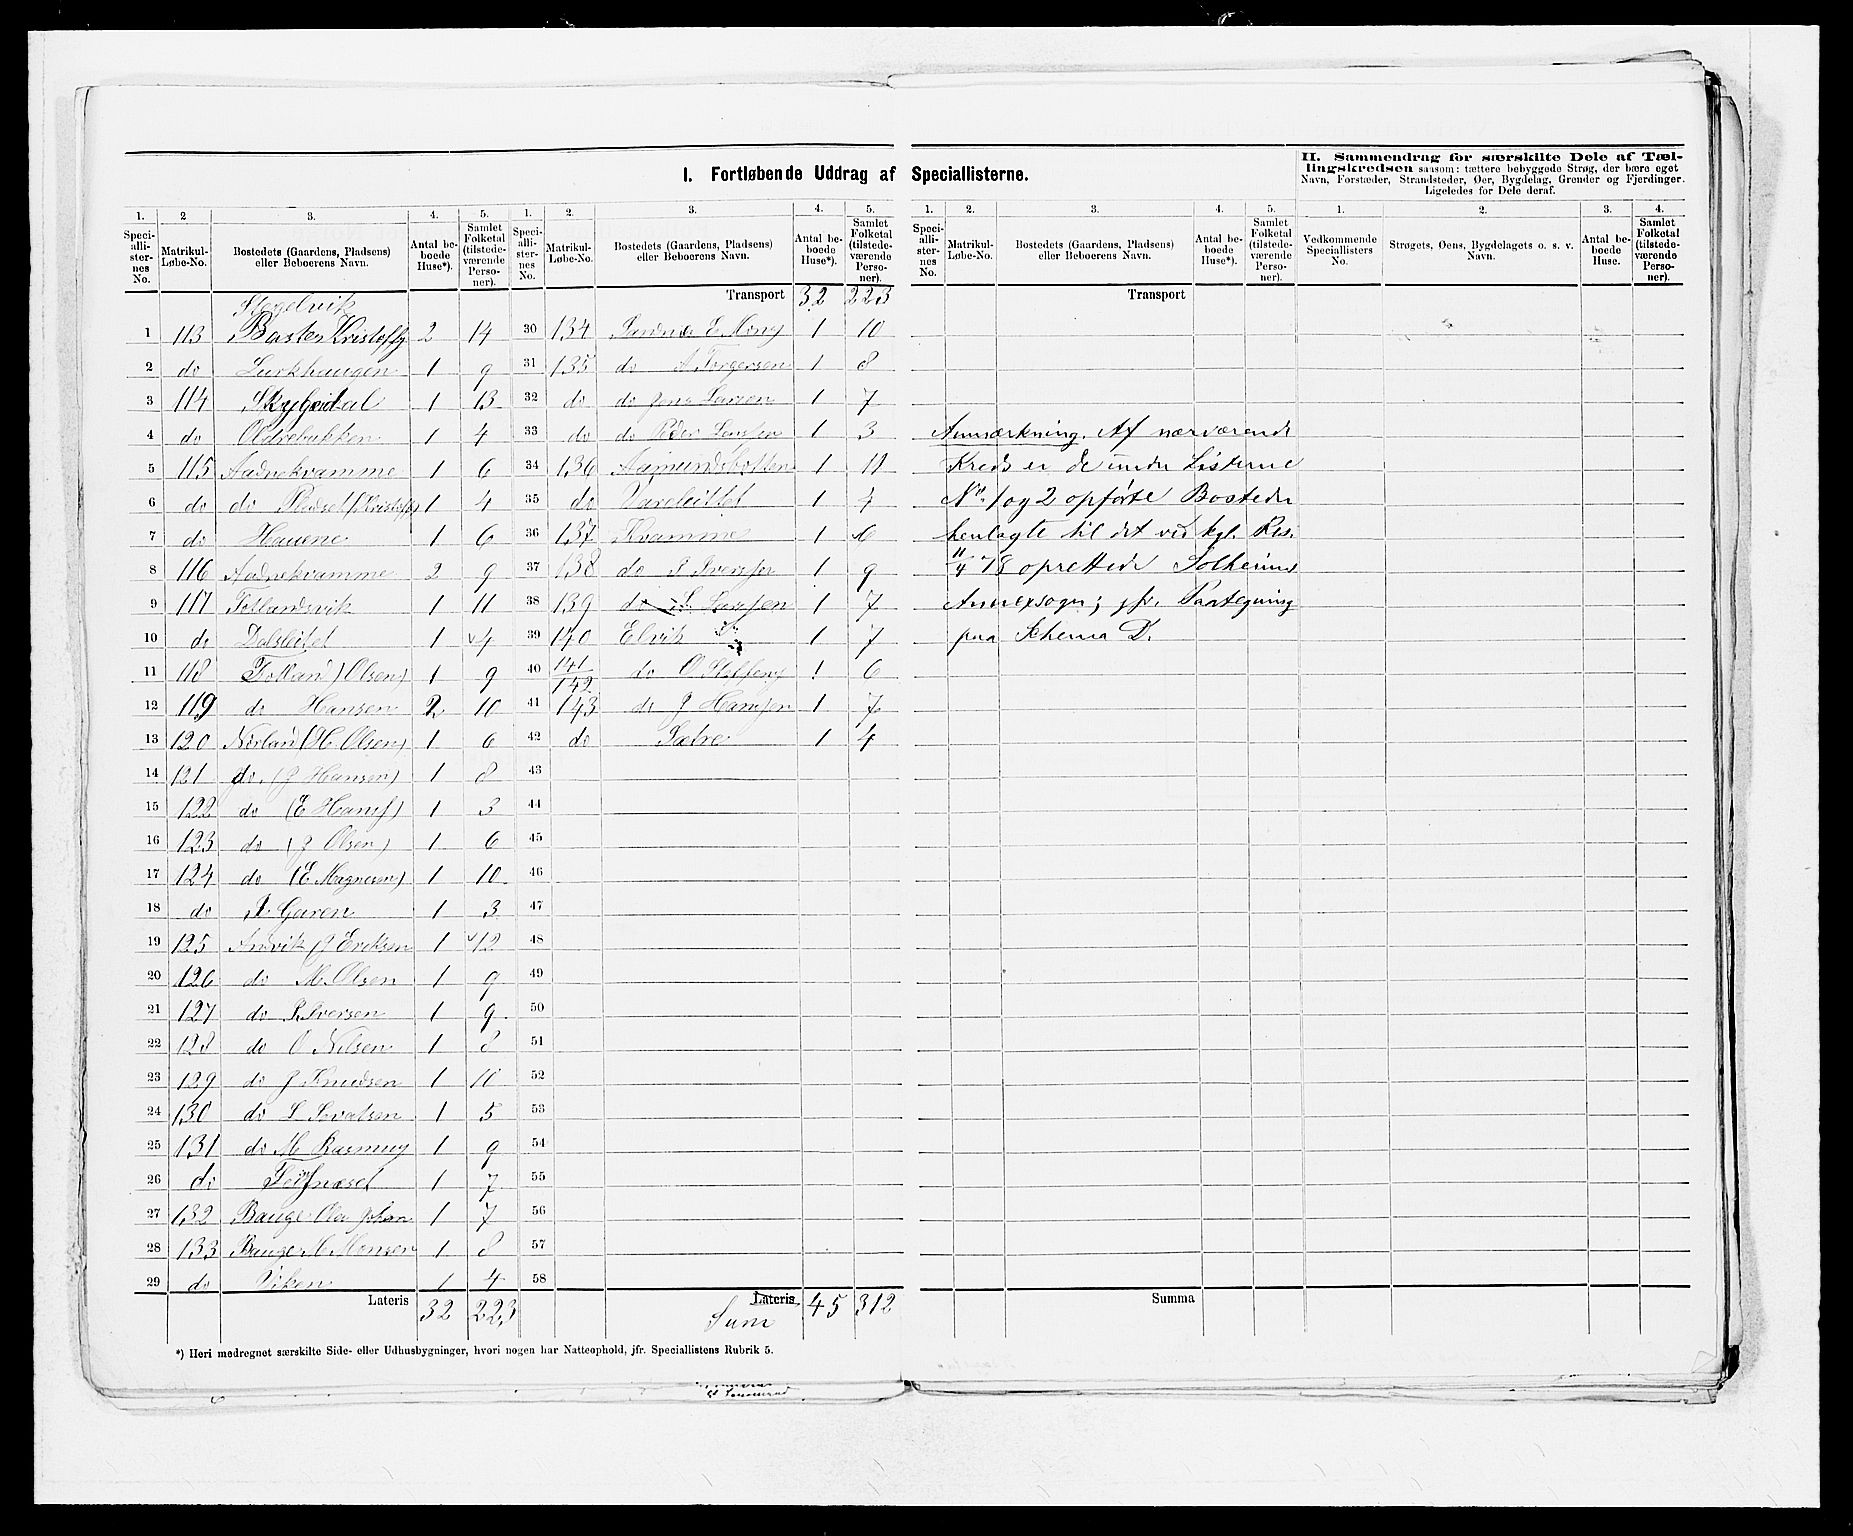 I. Fortløbende Uddrag af Speciallisterne.
II. Sammendrag for særskilte Dele af Tæl-
lingskredsen saasom: tættere bebyggede Strøg, der bære eget
Navn, Forstæder, Strandsteder, Øer, Bygdelag, Grender og Fjerdinger.
Ligeledes for Dele deraf.
1. 2 3. 4. 5. 1. 2. 3. 4. 5.
Speciallisternes No. Matrikul-Løbe-No. Bostedets (Gaardens, Pladsens) eller Beboerens Navn. Antal beboede Huse*). Samlet Folketal (tilstedeværende Personer). Speciallisternes No. Matrikul-Løbe-No. Bostedets (Gaardens, Pladsens) eller Beboerens Navn. Antal beboede Huse*). Samlet Folketal (tilstedeværende Personer).
Transport 32 223
1 113 2 14
2 do Lurkhaugen 1 9
3 114 Skygedal 1 13
4 do Oldrebakken 1 4
5 115 Aadnekvamme 1 6
6 do do Pladset (Kristoffs) 1 4
7 do Hauene 1 6
8 116 Aadnekvamme 2 9
9 117 Totlandsvik 1 11
10 do Dalsleitet 1 4
11 118 Totland (Olsen) 1 9
12 119 do Hansen 2 10
13 120 Nørland (H Olsen) 1 6
14 121 do. (J Hansen) 1 8
15 122 do (E Hans) 1 3
16 123 do (J Olsen) 1 6
17 124 do (E Magnesen) 1 10
18 do Garen 1 3
19 125 Andvik (J Eriksen 1 12
20 126 do M. Olsen 1 9
21 127 do R. Iversen 1 9
22 128 do O Nilsen 1 8
23 129 do J Knudsen 1 10
24 130 do S Sivatsen 1 5
25 131 do M Rasmus 1 9
26 do 1 7
27 132 Bauge Ola Johan 1 7
28 133 Bauge M Monsen 1 8
29 do Viken 1 4
Lateris 32 223
30 134 1 10
31 135 do A Torgersen 1 8
32 do do Jens Larsen 1 7
33 do do Peder 1 3
34 136 Aamundsbotten 1 11
35 do Vareleittet 1 4
36 137 Kvamme 1 6
37 138 do Iversen 1 9
38 139 do 1 7
39 140 Elvik 1 7
40 141/142 do O 1 6
41 143 do J Hansen 1 7
42 do Sætre 1 4
43
44
45
46
47
48
49
50
51
52
53
54
55
56
57
58
Lateris 45 312
Sum
*) Heri medregnet særskilte Side- eller Udhusbygninger, hvori nogen har Natteophold, jfr. Speciallistens Rubrik 5.
1. 2. 3. 4. 5. 1. 2. 3. 4.
Speciallisternes No. Matrikul-Løbe-No. Bostedets (Gaardens, Pladsens) eller Beboerens Navn. Antal beboede Huse*). Samlet Folketal (tilstedeværende Personer). Vedkommende Speciallisters No. Strøgets, Øens, Bygdelagets o. s. v. Navn. Antal beboede Huse. Samlet Folketal (tilstedeværende Personer).
Transport
Anmærkning. Af nærværende
Kreds er de under Listerne
No. 1 og 2 opførte Bosteder
henlagte til det ved kgl. Res.
11/4 78 oprettede Solheims
Annexsogn; jfr. Paategning
paa Schema D.
Summa